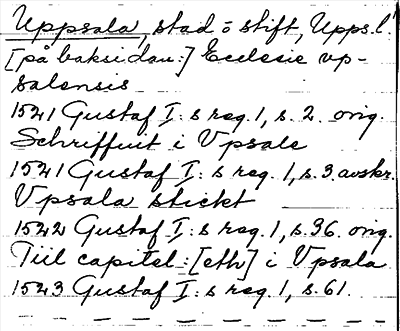 Uppsala, stad o stift, Upps. l.
[på baksidan:] Ecclesie vp-
salensis
1521 Gustaf I:s reg. 1, s. 2. orig.
Schriffuit i Vpsale
1521 Gustaf I:s reg. 1, s. 3 avskr.
Vpsala stickt
1522 Gustaf I:s reg. 1, s. 36. orig.
Till capitel:[eth] i Vpsala
1523 Gustaf I:s reg. 1, s. 61.